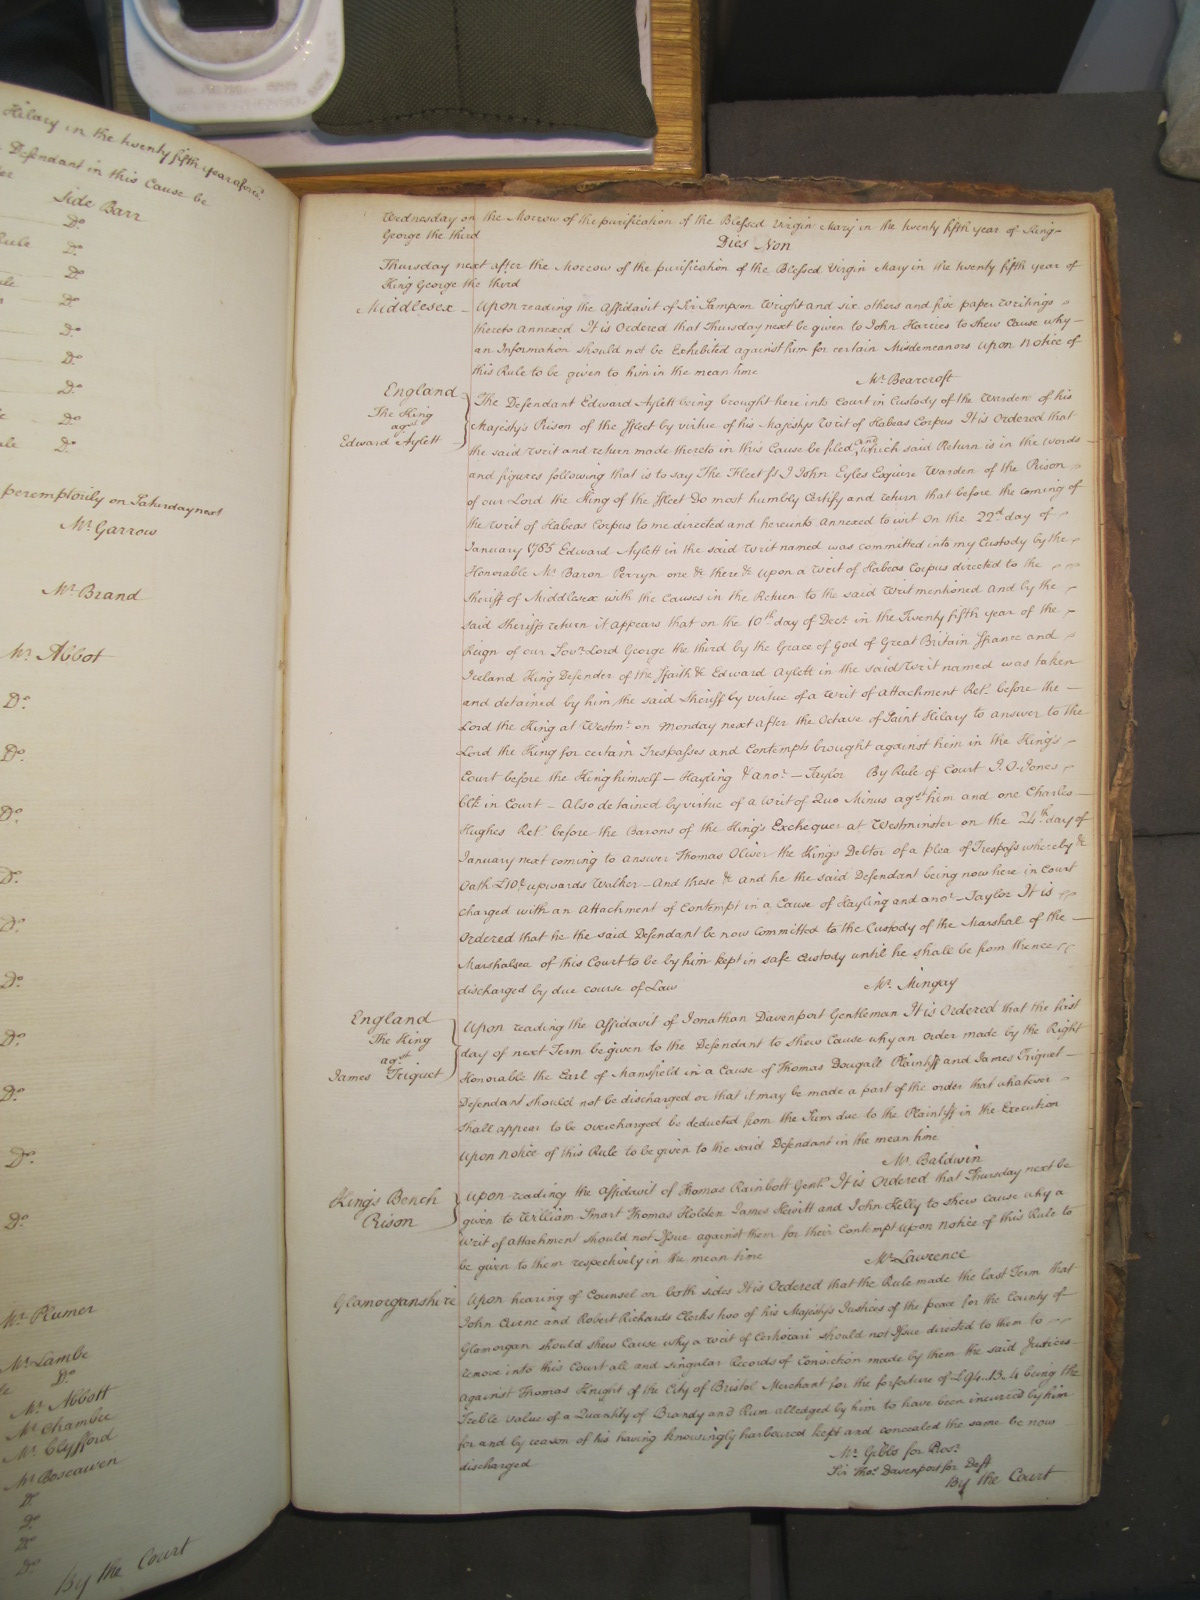 Hilary in the twenty fifth year afores.d
Defendant in this Cause be
Side Barr
D.o
Rule D.o
D.o
D.o
D.o
D.o
D.o
D.o
D.o
peremptorily on Saturday next
Mr. Garrow
Mr. Brand
Mr. Abbot
D.o
D.o
D.o
D.o
D.o
D.o
D.o
D.o
D.o
D.o
Mr. Plumer
Mr. Lambe
D.o
Mr. Abbott
Mr. Chambre
Mr. Clyfford
Mr. Boscawen
D.o
D.o
D.o
D.o
By the Court
Wednesday on the Morrow of the purification of the Blessed Virgin Mary in the twenty fifth year of King
George the third
Dies Non
Thursday next after the Morrow of the purification of the Blessed Virgin Mary in the twenty fifth year of
King George the third
Middlesex Upon reading the Affidavit of Sir Sampson Wright and six others and five paper Writings
thereto annexed It is Ordered that Thursday next be given to John Harries to shew Cause why
an Information should not be Exhibited against him for certain Misdemeanors Upon Notice of
this Rule to be given to him in the mean time
Mr. Bearcroft
England
The King
ag.st
Edward Aylett
The Defendant Edward Aylett being brought here into Court in Custody of the Warden of his
Majesty's Prison of the Fleet by virtue of his Majestys Writ of Habeas Corpus It is Ordered that
the said Writ and return made thereto in this Cause be filed and which said Return is in the words
and figures following that is to say The Fleet ss I John Eyles Esquire Warden of the Prison
of our Lord the King of the Fleet Do most humbly Certify and return that before the coming of
the Writ of Habeas Corpus to me directed and hereunto annexed to wit On the 22.d day of
January 1785 Edward Aylett in the said Writ named was committed into my Custody by the
Honorable Mr. Baron Perryn one &c there &c upon a Writ of Habeas Corpus directed to the
Sheriff of Middlesex with the Causes in the Return to the said Writ mentioned and by the
said Sheriffs return it appears that on the 10.th day of Dec.r in the Twenty fifth year of the
Reign of our Sov.n Lord George the third by the Grace of God of Great Britain France and
Ireland King Defender of the ffaith &c Edward Aylett in the said Writ named was taken
and detained by him the said Sheriff by virtue of a Writ of Attachment Ret.e before the
Lord the King at Westm.r on Monday next after the Octave of Saint Hilary to answer to the
Lord the King for certain Trespasses and Contempts brought against him in the King's
Court before the King himself — Hayling & ano.r — Taylor By Rule of Court J. O. Jones
Clk in Court — Also detained by virtue of a Writ of Quo Minus ag.st him and one Charles
Hughes Ret.e before the Barons of the King's Exchequer at Westminster on the 24.th day of
January next coming to answer Thomas Oliver the King's Debtor of a plea of Trespass whereby &c
Oath £10 & upwards Walker — And these &c and he the said Defendant being now here in Court
charged with an Attachment of Contempt in a Cause of Hayling and ano.r — Taylor It is
Ordered that he the said Defendant be now Committed to the Custody of the Marshal of the
Marshalsea of this Court to be by him kept in safe Custody until he shall be from thence
discharged by due course of Law
Mr. Mingay
England
The King
ag.st
James Triquet
Upon reading the Affidavit of Jonathan Davenport Gentleman It is Ordered that the first
day of next Term be given to the Defendant to Shew Cause why an Order made by the Right
Honorable the Earl of Mansfield in a Cause of Thomas Dougall Plaintiff and James Triquet
Defendant should not be discharged or that it may be made a part of the order that whatever
shall appear to be overcharged be deducted from the Sum due to the Plaintiff in the Execution
Upon Notice of this Rule to be given to the said Defendant in the mean time
Mr. Baldwin
King's Bench
Prison
Upon reading the Affidavit of Thomas Rainbott Gent.n It is Ordered that Thursday next be
given to William Smart Thomas Holden James Hewitt and John Kelly to shew cause why a
Writ of attachment should not Issue against them for their Contempt Upon Notice of this Rule to
be given to them respectively in the mean time
Mr. Lawrence
Glamorganshire Upon hearing of Counsel on both sides It is Ordered that the Rule made the last Term that
John Curne and Robert Richards Clerks two of his Majesty's Justices of the peace for the County of
Glamorgan should shew Cause why a Writ of Certiorari should not Issue directed to them to
remove into this Court all and singular Records of Conviction made by them the said Justices
against Thomas Knight of the City of Bristol Merchant for the forfeiture of £94..13..4 being the
Treble value of a Quantity of Brandy and Rum alledged by him to have been incurred by him
for and by reason of his having knowingly harboured kept and concealed the same be now
discharged
Mr. Gibbs for Pros.r
Sir Tho.s Davenport for Deft
By the Court